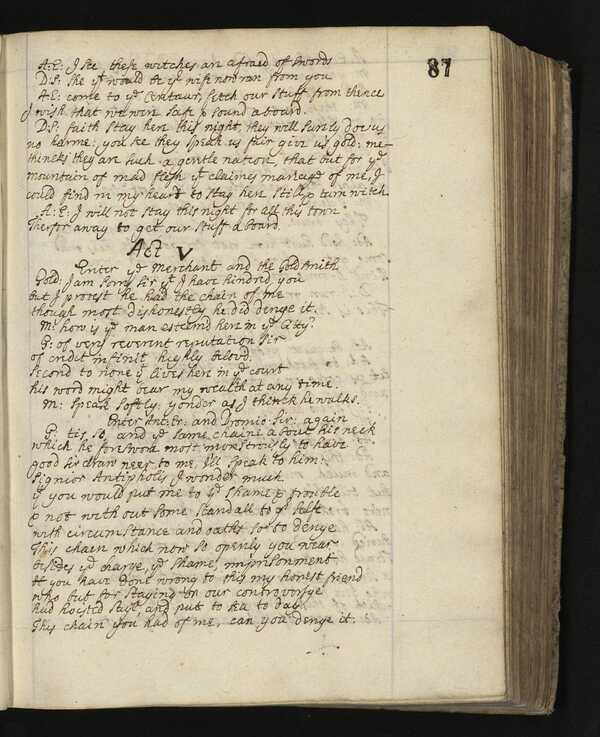 87
A:E: I see these witches are afraid of swords
D:S: she yt would be yr wife now ran from you
A:E: come to ye Centaur, fetch our stuff from thence
I wish that we were safe & sound aboard.
D:S: faith stay here this night, they will surely doe us
no harme: you see they speak us fair give us gold: me=
thinkes they are such a gentle nation, that but for ye
mountain of mad flesh yt claimes mariage of me, I
could find in my heart to stay here still & turn witch
A:E: I will not stay this night for all this town
Therfor away to get our stuff aboard.
Act V
Enter ye Merchant and the Goldsmith
Gold: I am sorry sir yt I have hindred you
But I protest he had the chain of me
though most dishonestly he did denye it.
M: how is ye man esteemd here in ye Citty?
G: of very reverent reputation sir
of credit infinit highly belovd.
Second to none yt lives here in ye court
his word might bear my wealth at any time.
M: Speak softly, yonder as I thinck he walks.
Enter Ant:Er: and Dromio:Sir: again
G: tis so, and yt same chaine about his neck
which he forswore most monstrously to have
good sir draw neer to me, Ill speak to him:
Signior Antipholis I wonder much
yt you would put me to ys shame & trouble
& not with out some scandall to yr self
with circumstance and oaths so to denye
This chain which now so openly you wear
besides ye charge, ye shame, imprisonment
you have done wrong to this my honest friend
who but for staying on our controversye
had hoisted sayl, and put to sea to day.
This chain you had of me, can you denye it.